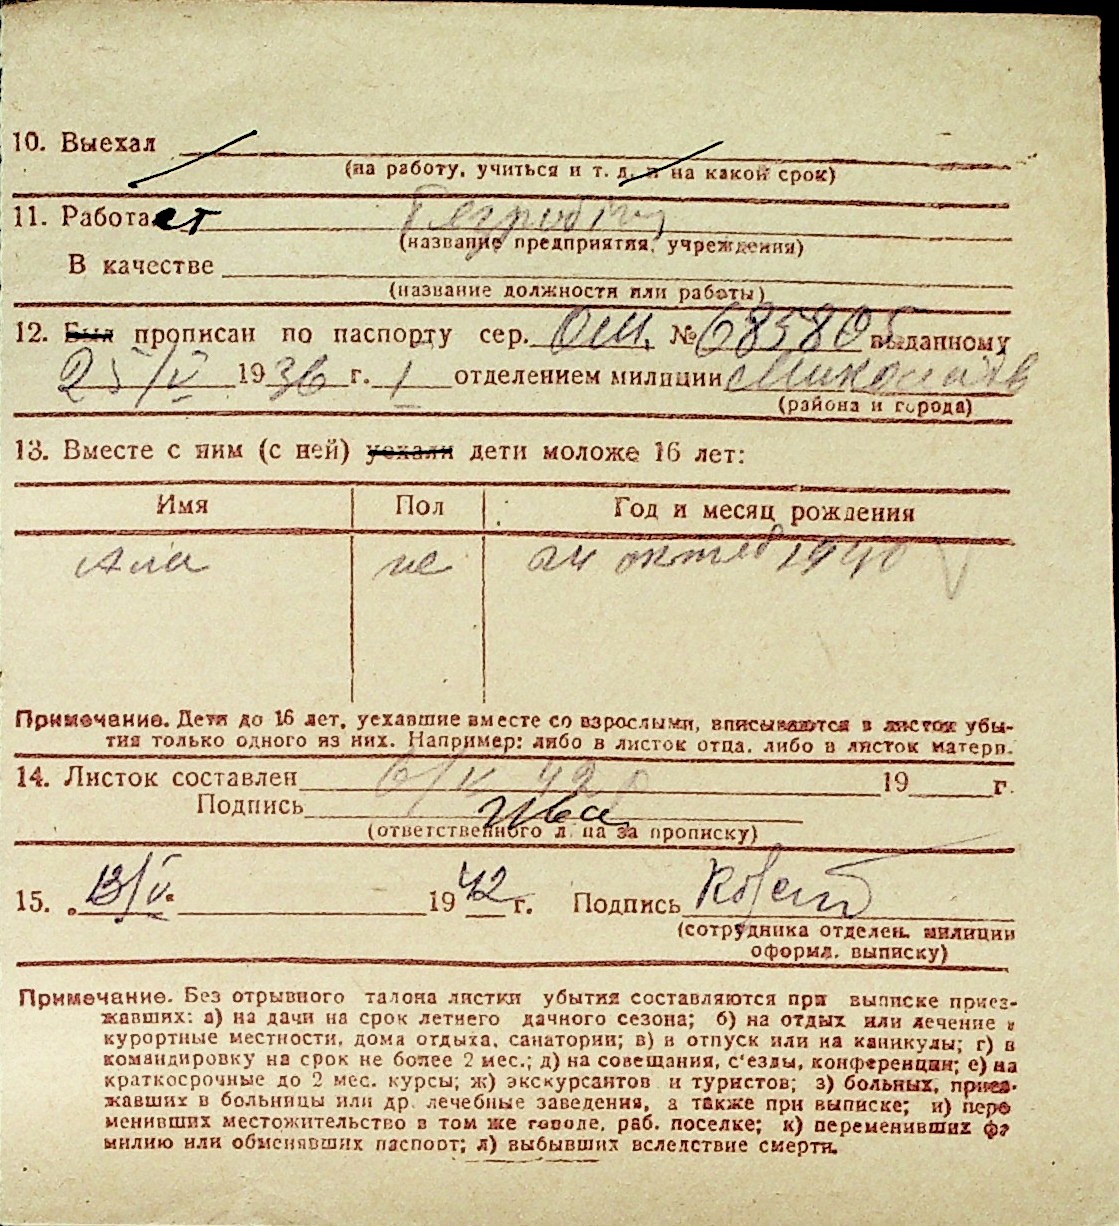 10. Выехал
(на работу, учиться и т. д. и на какой срок)
11. Работает
(название предприятия, учреждения)
В качестве
(название должности или работы)
12. Был прописан по паспорту сер. № 685805 выданному
25/V 1936 г. I отделением милиции
(района и города)
13. Вместе с ним (с ней) уехали дети моложе 16 лет:
Имя Пол Год и месяц рождения
Ала 1940
Примечание. Дети до 16 лет, уехавшие вместе со взрослыми, вписываются в листок убы-
тия только одного из них. Например: либо в листок отца, либо в листок матери.
14. Листок составлен 19 г.
Подпись
(ответственного лица за прописку)
15. 13/V 1942 г. Подпись
(сотрудника отделен. милиции
оформл. выписку)
Примечание. Без отрывного талона листки убытия составляются при выписке приез-
жавших: а) на дачи на срок летнего дачного сезона; б) на отдых или лечение в
курортные местности, дома отдыха, санатории; в) в отпуск или на каникулы; г) в
командировку на срок не более 2 мес.; д) на совещания, с'езды, конференции; е) на
краткосрочные до 2 мес. курсы; ж) экскурсантов и туристов; з) больных, приез-
жавших в больницы или др. лечебные заведения, а также при выписке; и) пере
менивших местожительство в том же городе, раб. поселке; к) переменивших фа
милию или обменявших паспорт; л) выбывших вследствие смерти.